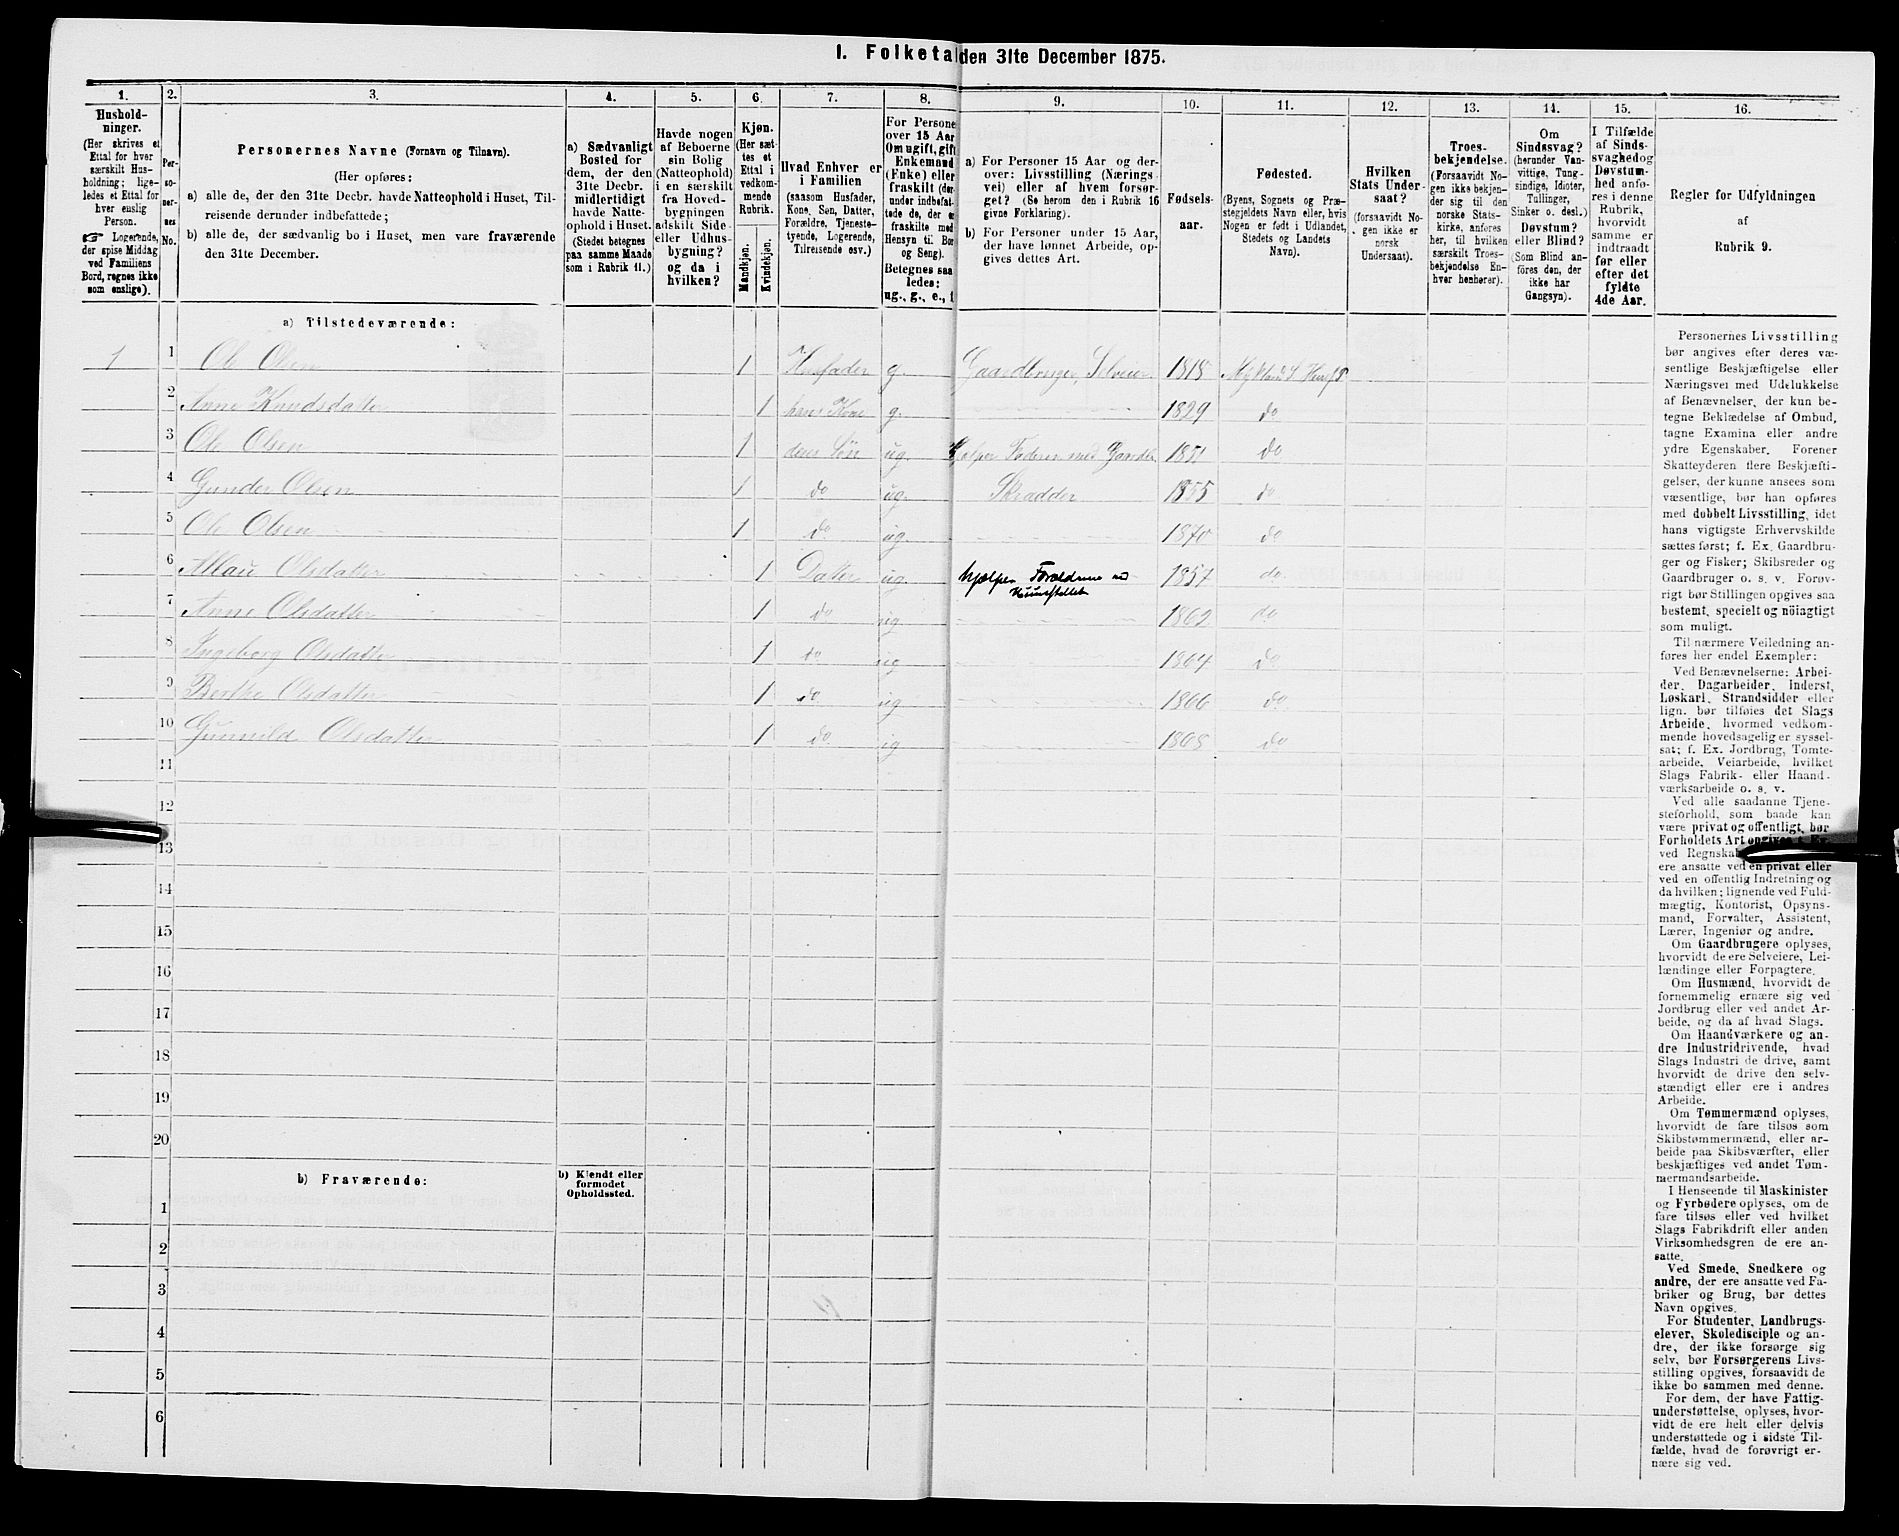 I. Folketal den 31te December 1875.
1. 2. 3. 4. 5. 6. 7. 8. 9. 10. 11. 12. 13. 14. 15. 16.
Hushold-
ninger.
(Her skrives et
Ettal for hver
særskilt Hus-
holdning; lige-
ledes et Ettal for
hver enslig
Person.
☞ Logerende,
der spise Middag
ved Familiens
Bord, regnes ikke
som enslige).
Per-
so-
ner-
nes
No.
Personernes Navne (Fornavn og Tilnavn).
(Her opføres:
a) alle de, der den 31te Decbr. havde Natteophold i Huset, Til-
reisende derunder indbefattede;
b) alle de, der sædvanlig bo i Huset, men vare fraværende
den 31te December.
a) Sædvanligt
Bosted for
dem, der den
31te Decbr.
midlertidigt
havde Natte-
ophold i Huset.
(Stedet betegnes
paa samme Maade
som i Rubrik 11.)
Havde nogen
af Beboerne
sin Bolig
(Natteophold)
i en særskilt
fra Hoved-
bygningen
adskilt Side-
eller Udhus-
bygning?
og da i
hvilken?
Kjøn.
(Her sæt-
tes et
Ettal i
vedkom-
mende
Rubrik.
Mandkjøn.
Kvindekjøn.
Hvad Enhver er
i Familien
(saasom Husfader,
Kone, Søn, Datter,
Forældre, Tjeneste-
tyende, Logerende,
Tilreisende osv.)
For Persone
over 15 Aar
Om ugift, gift
Enkemand
(Enke) eller
fraskilt (der-
under indbefat-
tede de, der e
fraskilte med
Hensyn til Bor
og Seng).
Betegnes saa
ledes:
ug., g., e., f
a) For Personer 15 Aar og der-
over: Livsstilling (Nærings-
vei) eller af hvem forsør-
get? (Se herom den i Rubrik 16
givne Forklaring).
b) For Personer under 15 Aar,
der have lønnet Arbeide, op-
gives dettes Art.
Fødsels-
aar.
Fødested.
(Byens, Sognets og Præ-
stegjeldets Navn eller, hvis
Nogen er født i Udlandet,
Stedets og Landets
Navn).
Hvilken
Stats Under-
saat?
(forsaavidt No-
gen ikke er
norsk
Undersaat).
Troes-
bekjendelse.
(Forsaavidt No-
gen ikke bekjen-
der sig til den
norske Stats-
kirke, anføres
her, til hvilken
særskilt Troes-
bekjendelse En-
hver henhører).
Om
Sindssvag?
(herunder Van-
vittige, Tung-
sindige, Idioter,
Tullinger,
Sinker o. desl.)
Døvstum?
eller Blind?
(Som Blind an-
føres den, der
ikke har
Gangsyn).
I Tilfælde
af Sinds-
svaghed og
Døvstum-
hed anfø-
res i denne
Rubrik,
hvorvidt
samme er
indtraadt
før eller
efter det
fyldte
4de Aar.
Regler for Udfyldningen
af
Rubrik 9.
a) Tilstedeværende:
1 1 Ole Olsen 1 Husfader g. Gaardbruger, Selveier 1818 Mykland S.
2 Anne Knudsdatter 1 hans Kone g. 1829 do
3 Ole Olsen 1 deres Søn ug. Hjelper Faderen med Gaardbr. 1851 do
4 Gunder Olsen 1 do ug. Skrædder 1855 do
5 Ole Olsen 1 do ug. 1870 do
6 Olsdatter 1 Datter ug hjælper Forældrene med
Huusstellet 1857 do
7 Anne Olsdatter 1 do ug 1862 do
8 Ingeborg Olsdatter 1 do ug 1864 do
9 Berthe Olsdatter 1 do ug 1866 do
10 Gunnild Olsdatter 1 do ug 1868 do
11
12
13
14
15
16
17
18
19
20
b) Fraværende:
b) Kjendt eller
formodet
Opholdssted.
1
2
3
4
5
6
Personernes Livsstilling
bør angives efter deres væ-
sentlige Beskjæftigelse eller
Næringsvei med Udelukkelse
af Benævnelser, der kun be-
tegne Beklædelse af Ombud,
tagne Examina eller andre
ydre Egenskaber. Forener
Skatteyderen flere Beskjæfti-
gelser, der kunne ansees som
væsentlige, bør han opføres
med dobbelt Livsstilling, idet
hans vigtigste Erhvervskilde
sættes først; f. Ex. Gaardbru-
ger og Fisker; Skibsreder og
Gaardbruger o. s. v. Forøv-
rigt bør Stillingen opgives saa
bestemt, specielt og nöiagtigt
som muligt.
Til nærmere Veiledning an-
føres her endel Exempler:
Ved Benævnelserne: Arbei-
der, Dagarbeider, Inderst,
Løskarl, Strandsidder eller
lign. bør tilføies det Slags
Arbeide, hvormed vedkom-
mende hovedsagelig er syssel-
sat; f. Ex. Jordbrug, Tomte-
arbeide, Veiarbeide, hvilket
Slags Fabrik- eller Haand-
værksarbeide o. s. v.
Ved alle saadanne Tjene-
steforhold, som baade kan
være privat og offentligt, bør
Forholdets Art opgives
ved Regnska
ere ansatte ved en privat eller
ved en offentlig Indretning og
da hvilken; lignende ved Fuld-
mægtig, Kontorist, Opsyns-
mand, Forvalter, Assistent,
Lærer, Ingeniør og andre.
Om Gaardbrugere oplyses,
hvorvidt de ere Selveiere, Lei-
lændinge eller Forpagtere.
Om Husmænd, hvorvidt de
fornemmelig ernære sig ved
Jordbrug eller ved andet Ar-
beide, og da af hvad Slags.
Om Haandværkere og an-
dre Industridrivende, hvad
Slags Industri de drive, samt
hvorvidt de drive den selv-
stændigt eller ere i andres
Arbeide.
Om Tømmermænd oplyses,
hvorvidt de fare tilsøs som
Skibstømmermænd, eller ar-
beide paa Skibsværfter, eller
beskjæftiges ved andet Tøm-
mermandsarbeide.
I Henseende til Maskinister
og Fyrbødere oplyses, om de
fare tilsøs eller ved hvilket
Slags Fabrikdrift eller anden
Virksomhedsgren de ere an-
satte.
Ved Smede, Snedkere og
andre, der ere ansatte ved Fa-
briker og Brug, bør dettes
Navn opgives.
For Studenter, Landbrugs-
elever, Skoledisciple og an-
dre, der ikke forsørge sig
selv, bør Forsørgerens Livs-
stilling opgives, forsaavidt de
ikke bo sammen med denne.
For dem, der have Fattig-
understøttelse, oplyses, hvor-
vidt de ere helt eller delvis
understøttede og i sidste Til-
fælde, hvad de forøvrigt er-
nære sig ved.